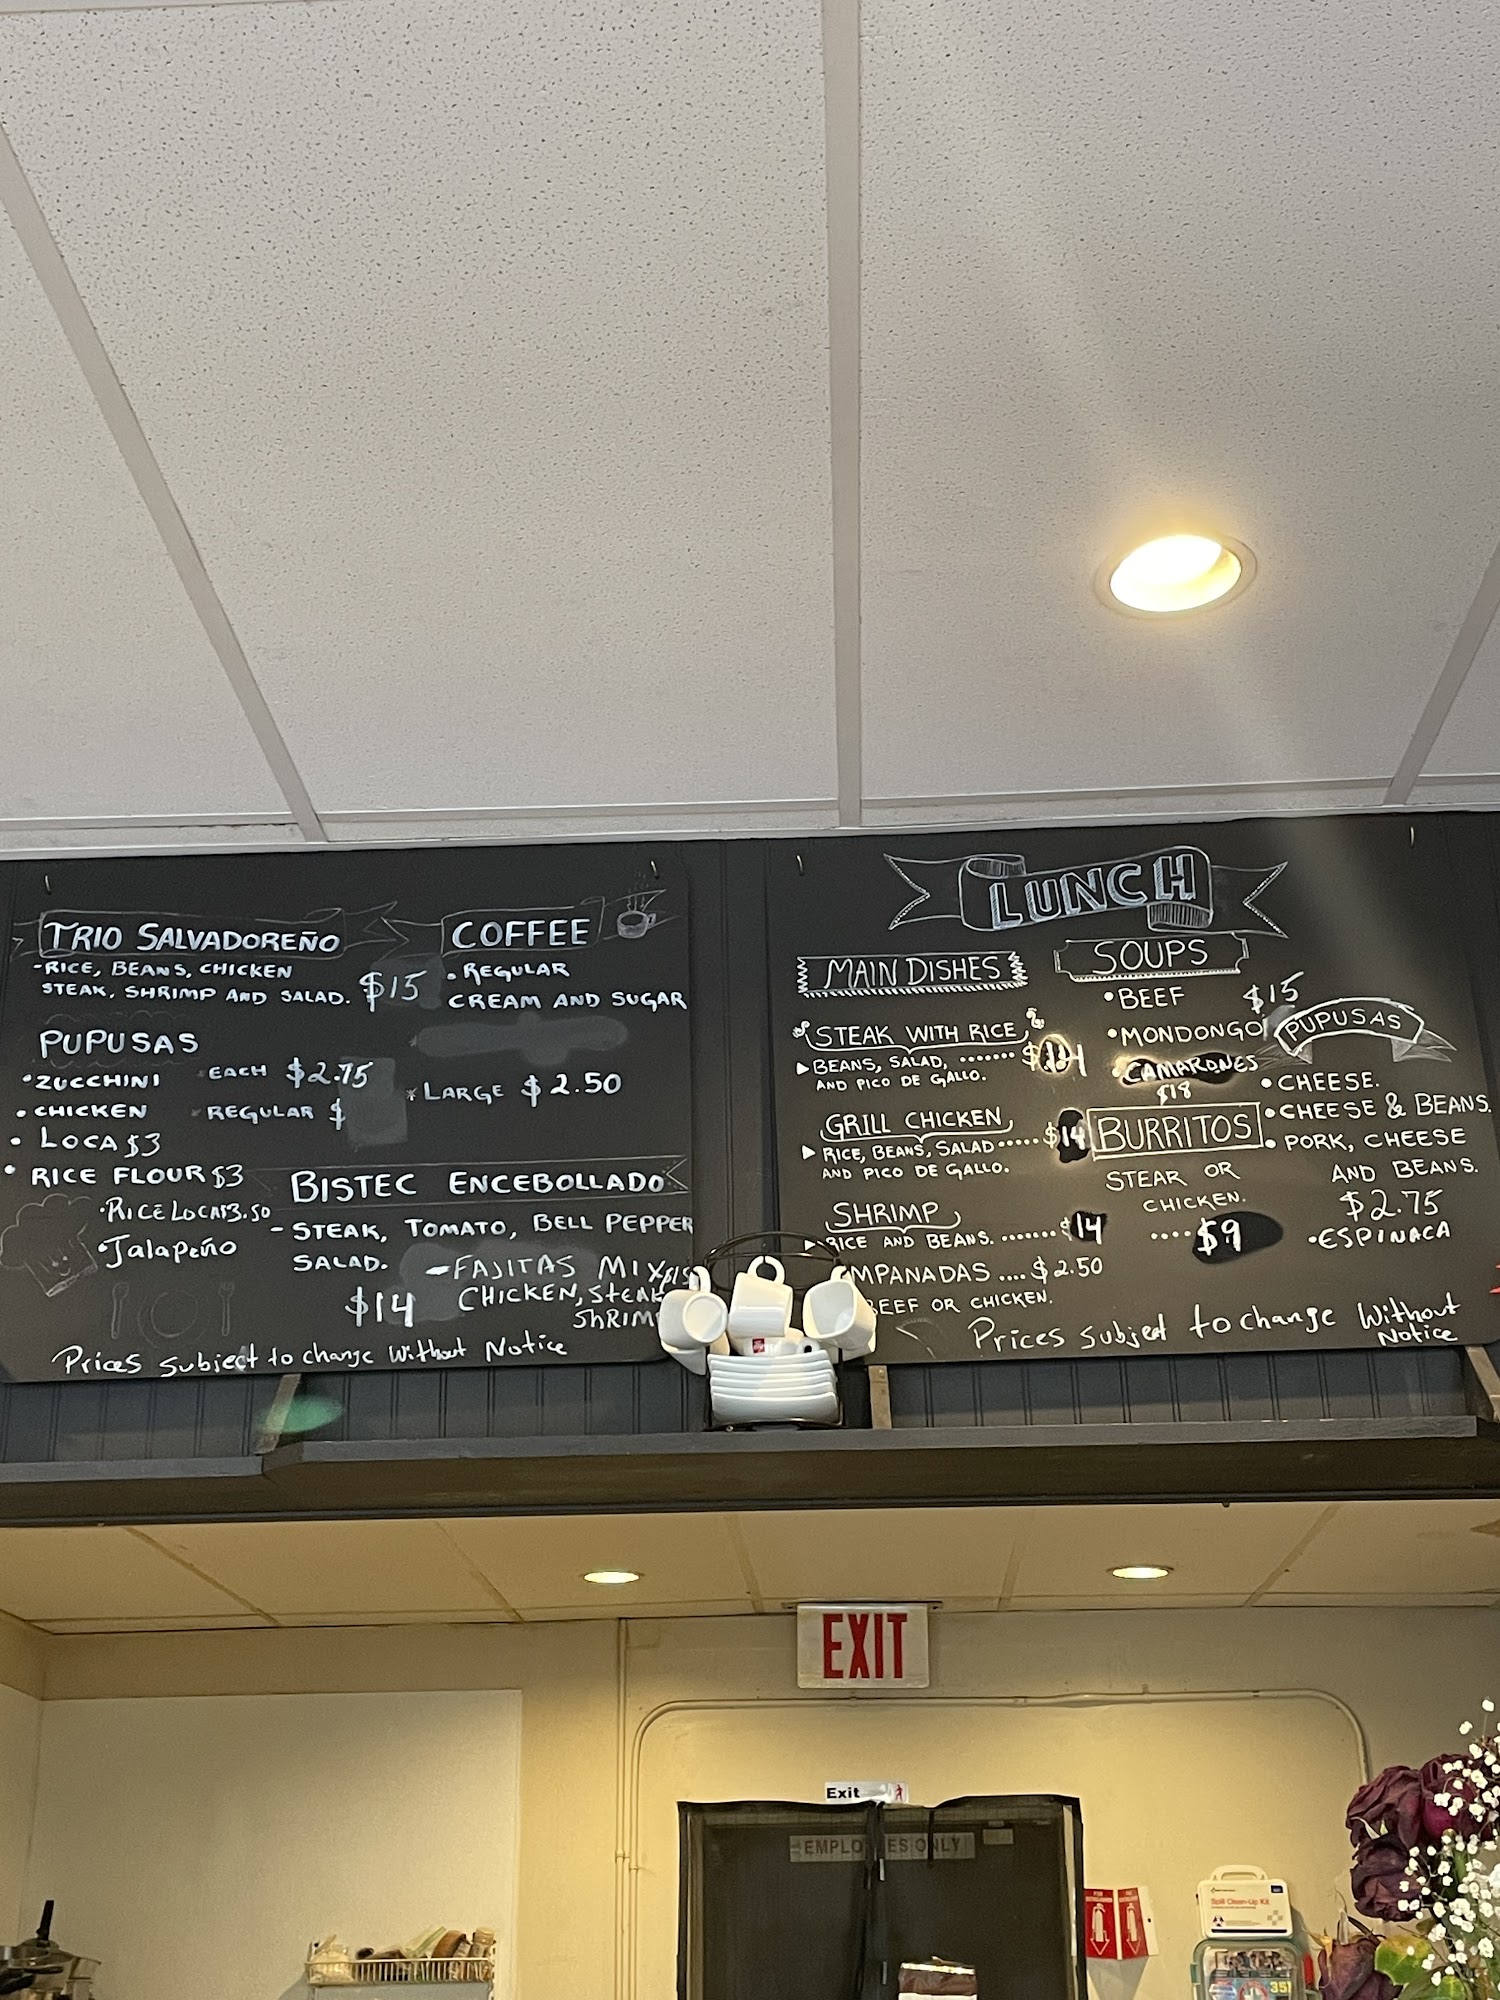 TRIO SALVADOREÑO
-RICE, BEANS, CHICKEN
STEAK, SHRIMP AND SALAD. $15
PUPUSAS
•ZUCCHINI EACH $2.75
•CHICKEN REGULAR $
•LOCA $3
•RICE FLOUR $3
•RICE LOCA $3.50
•Jalapeño
COFFEE
•REGULAR
CREAM AND SUGAR
*LARGE $2.50
BISTEC ENCEBOLLADO
-STEAK, TOMATO, BELL PEPPER
SALAD.
$14
-FAJITAS MIX $15
CHICKEN, STEAK
ShRIM
Prices subject to change Without Notice
LUNCH
MAIN DISHES
STEAK WITH RICE
BEANS, SALAD, ....... $14
AND PICO DE GALLO.
GRILL CHICKEN
RICE, BEANS, SALAD ..... $14
AND PICO DE GALLO.
SHRIMP
RICE AND BEANS. ....... $14
MPANADAS .... $2.50
BEEF OR CHICKEN.
SOUPS
•BEEF $15
•MONDONGO
•CAMARONES
$18
BURRITOS
STEAK OR
CHICKEN.
.... $9
PUPUSAS
•CHEESE.
•CHEESE & BEANS.
•PORK, CHEESE
AND BEANS.
$2.75
•ESPINACA
Prices subject to change Without
Notice
EXIT
Exit
EMPLOYEES ONLY
Spill Clean-Up Kit